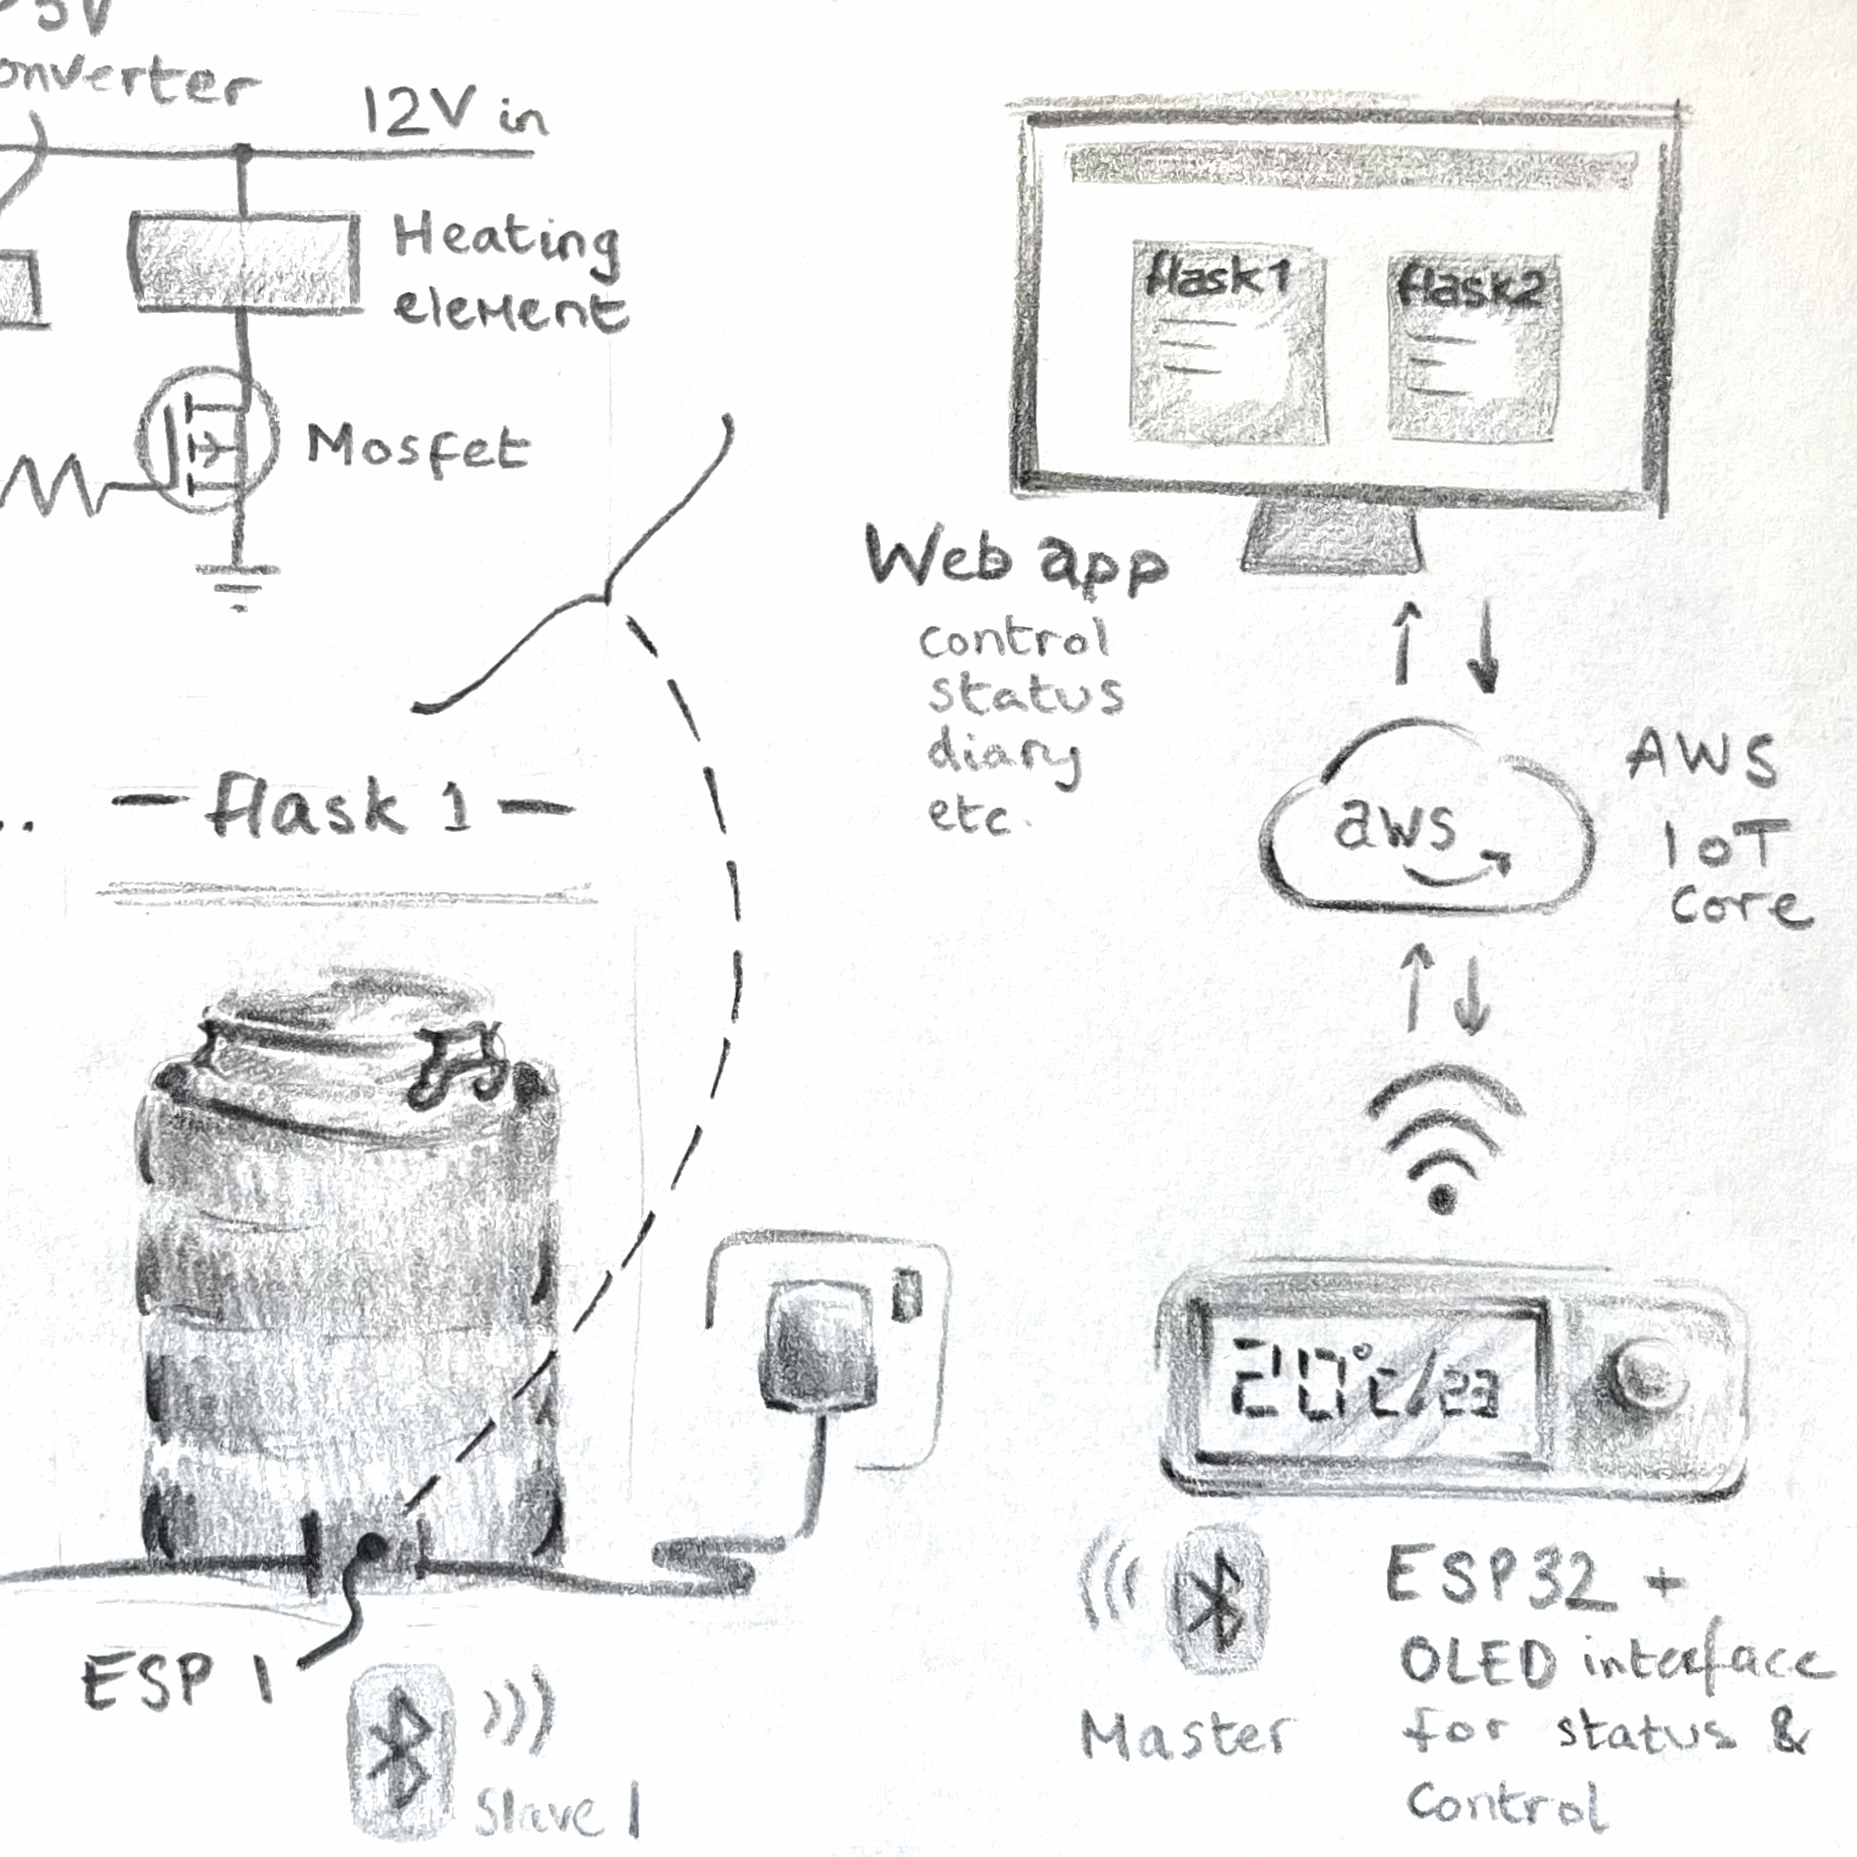 5V
onverter
12V in
Heating
element
Mosfet
flask 1
flask2
Web app
control
status
diary
etc.
aws
AWS
IoT
Core
.. — flask 1 —
20°C/23
ESP 1
Slave 1
Master
ESP32 +
OLED interface
for status &
Control